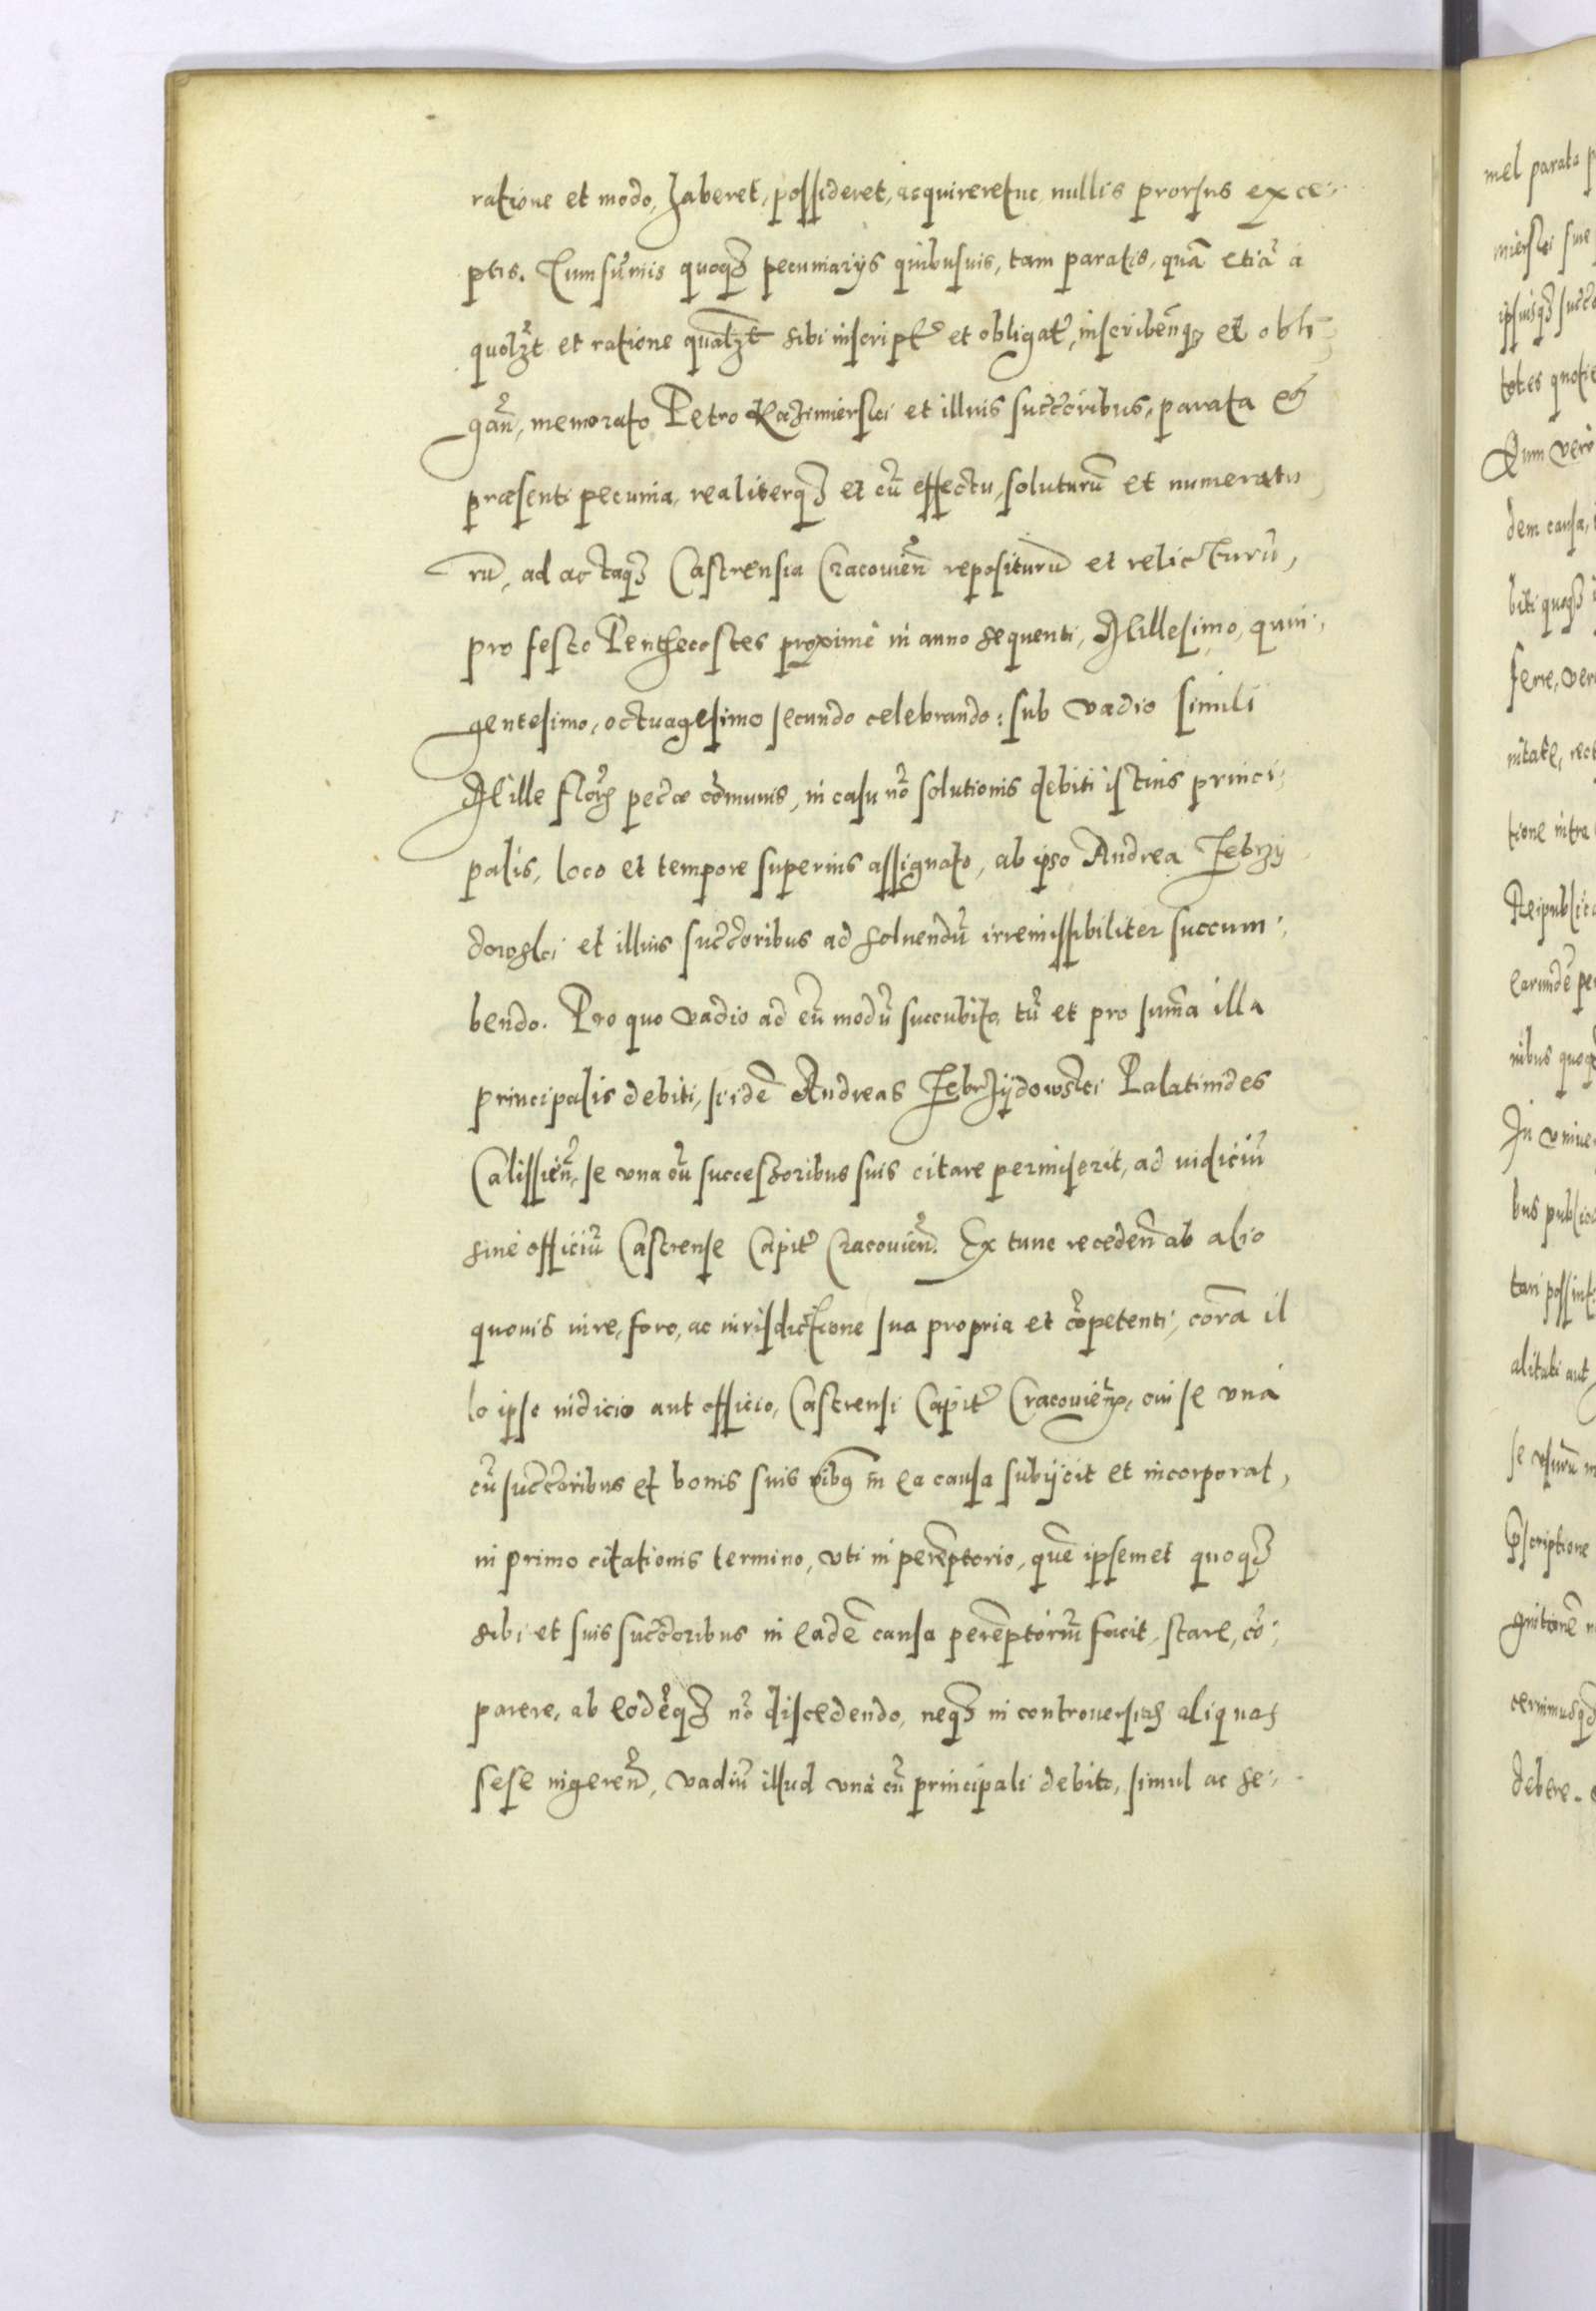 ratione et modo, haberet, possideret, acquireretue nullis prorsus exce-
ptis. Cum sum̃is quoqȝ pecuniarijs quibusuis, tam paratis, quã etiã à
quolȝt et ratione qualȝt sibi inscript̃ et obligat̃, inscriben̄qȝ et obli-
gan̄, memorato Petro Kazimierski et illius succ̃oribus, parata &
præsenti pecunia, realiterqȝ et cũ effectu, soluturũ et numeratu-
rũ, ad actaqȝ Castrensia Cracouien̄ repositurũ et relicturũ,
pro festo Penthecostes proximè in anno sequenti, Millesimo, quin-
gentesimo, octuagesimo secundo celebrando: sub vadio simili
Mille flor̃ pec̃æ cõmunis, in casu nõ solutionis debiti istius princi-
palis, loco et tempore superius assignato, ab ipso Andrea Zebrzy
dowski et illius succ̃oribus ad soluendũ irremissibiliter succum-
bendo. Pro quo vadio ad eũ modũ succubito, tũ et pro sum̃a illa
principalis debiti, si idẽ Andreas Zebrzijdowski Palatinides
Calissien̄, se vna cũ successoribus suis citare permiserit, ad iudiciũ
siue officiũ Castrense Capit̃ Cracouien̄. Ex tunc receden̄ ab alio
quouis iure, foro, ac iurisdictione sua propria et cõpetenti, corã il
lo ipso iudicio aut officio, Castrensi Capit̃ Cracouien̄, cui se vnà
cũ succ̃oribus et bonis suis oĩbus in ea causa subijcit et incorporat,
in primo citationis termino, vti in perẽptorio, quẽ ipsemet quoqȝ
sibi et suis succ̃oribus in eadẽ causa perẽptoriũ facit, stare, cõ-
parere, ab eodẽqȝ nõ discedendo, neqȝ in controuersias aliquas
sese ingeren̄, vadiũ illud vnà cũ principali debito, simul ac se-
mel parata
ipsiusqȝ
dem causa,
ferre,
tione intra
nibus
alitati aut
debere.